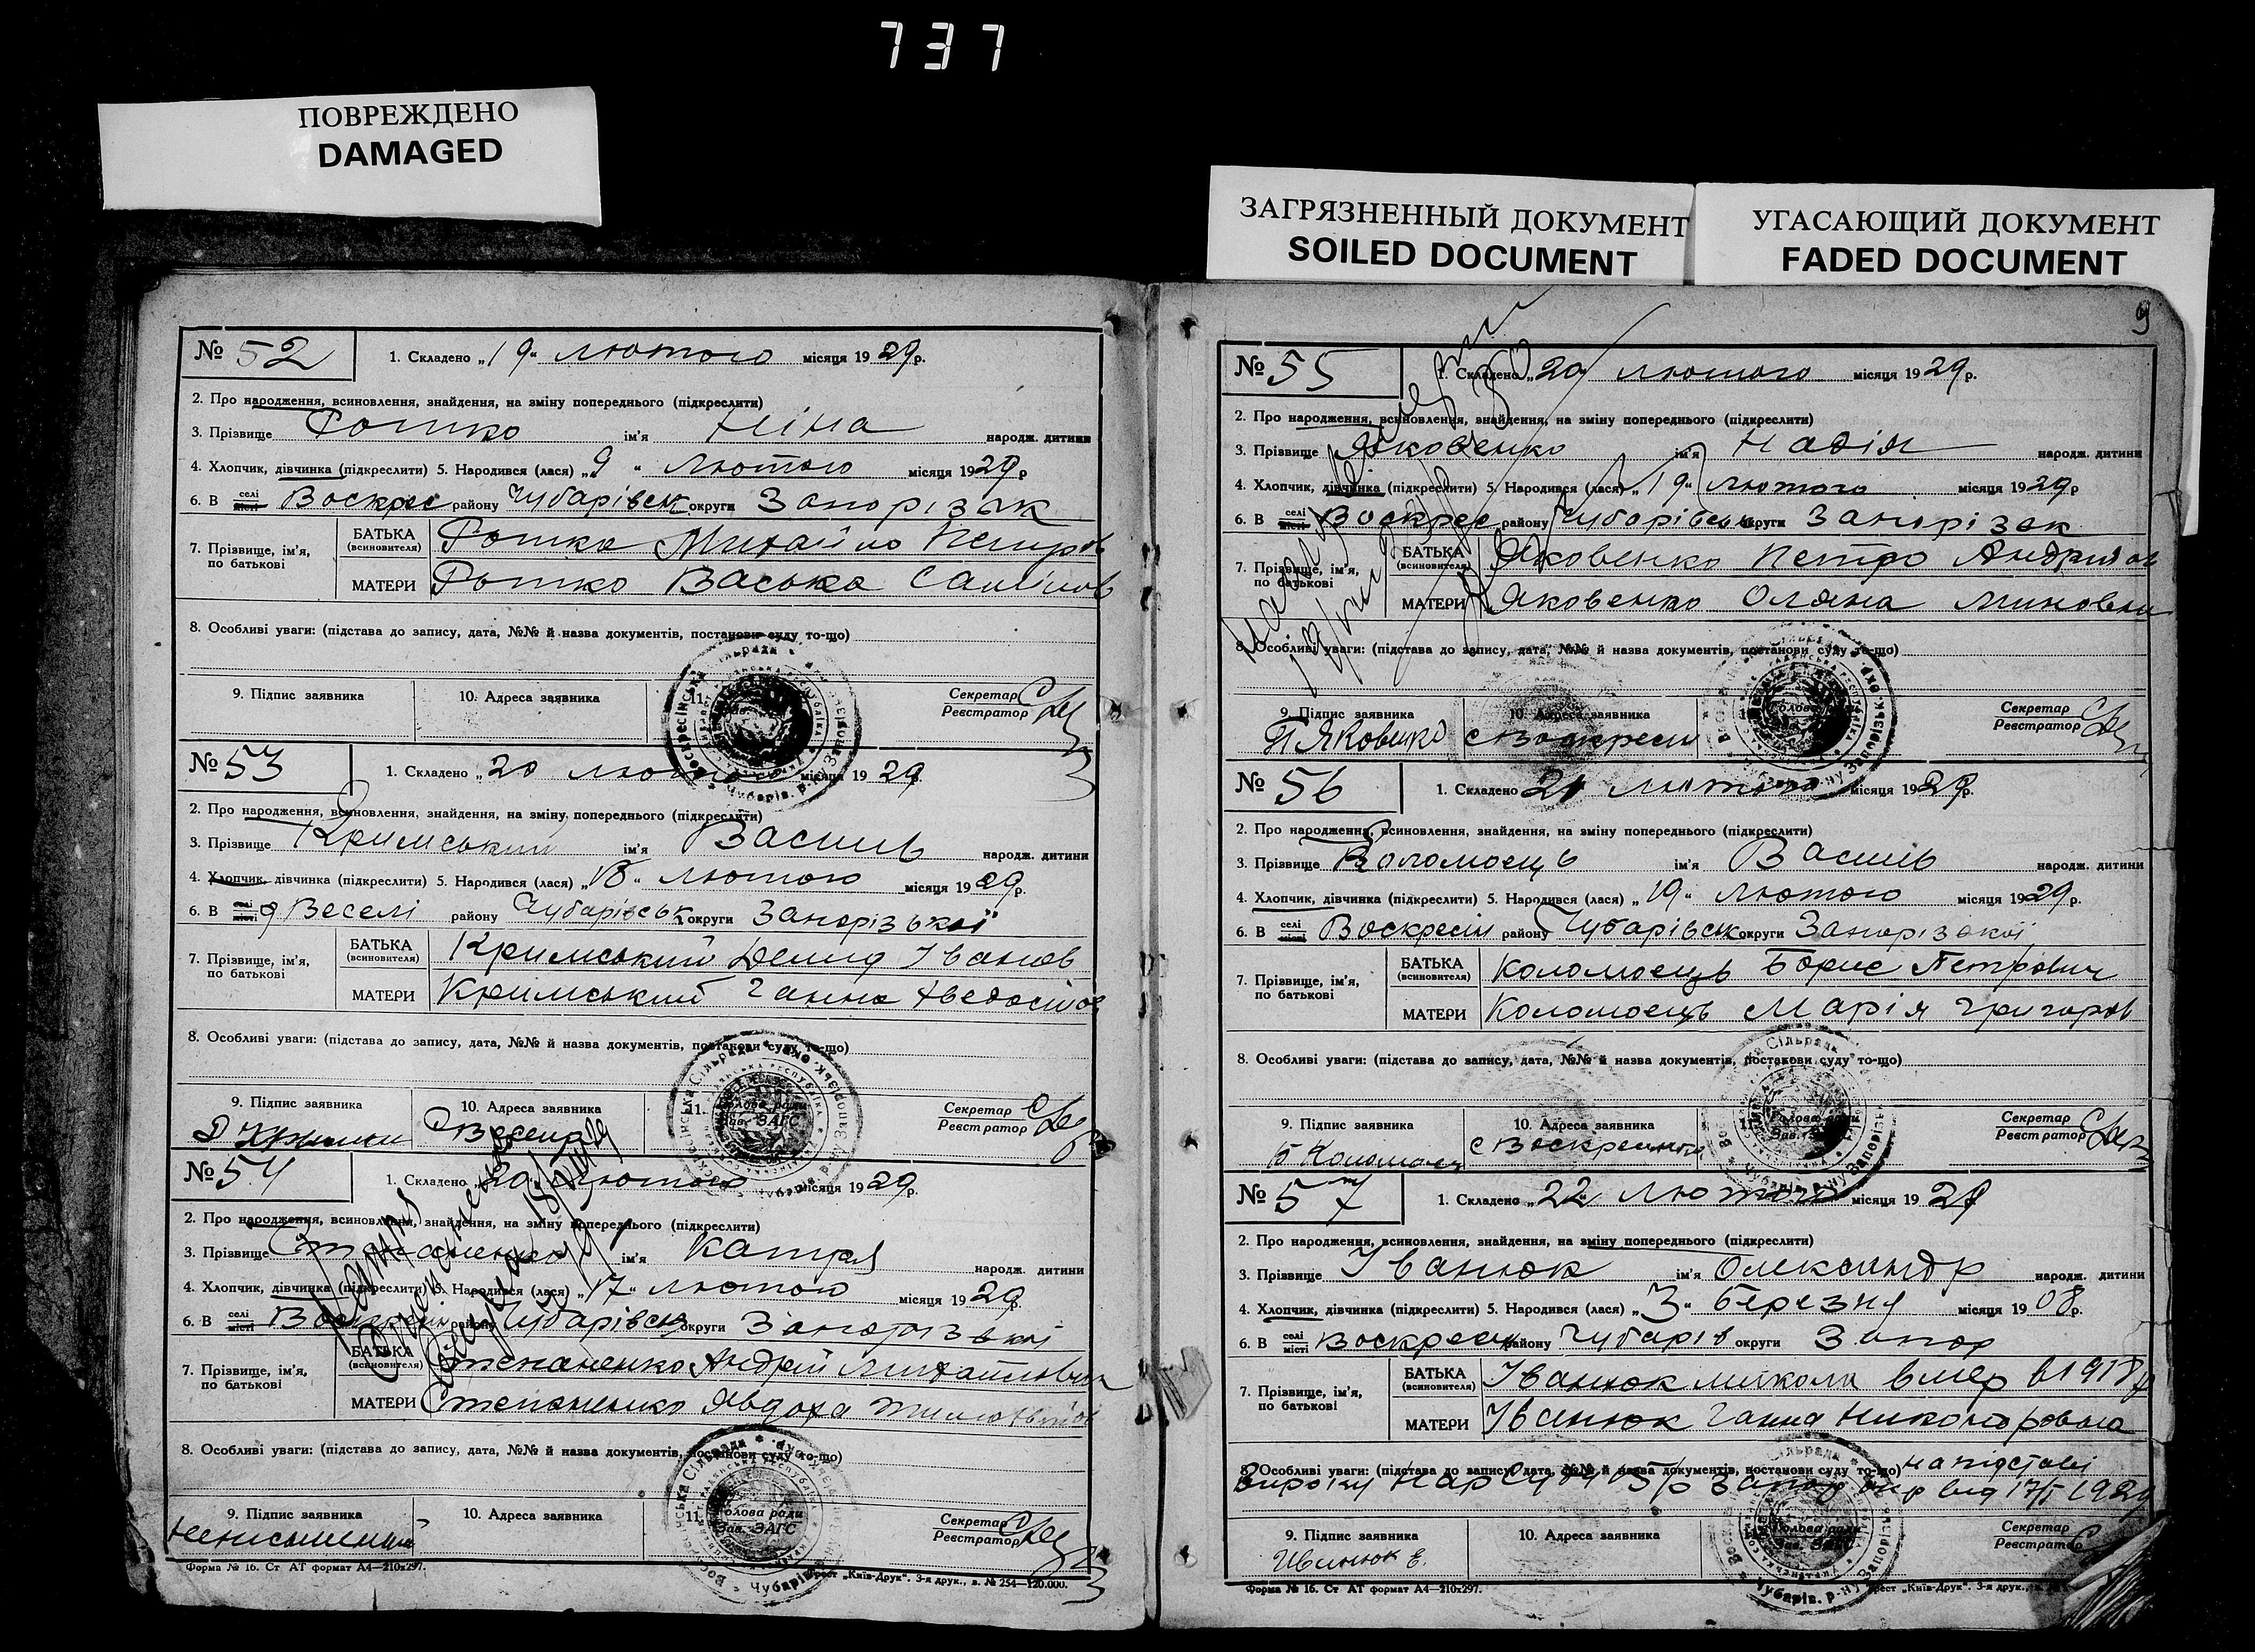 737
ПОВРЕЖДЕНО
DAMAGED
ЗАГРЯЗНЕННЫЙ ДОКУМЕНТ
SOILED DOCUMENT
УГАСАЮЩИЙ ДОКУМЕНТ
FADED DOCUMENT
№ 52
1. Складено „19“ лютого місяця 1929р.
2. Про народження, всиновлення, знайдення, на зміну попереднього (підкреслити)
3. Прізвище Рошко ім'я Ніна народж. дитини
4. Хлопчик, дівчинка (підкреслити) 5. Народився (лася) „9“ лютого місяця 1929р
6. В селі місті Воскрес району Чубарівськ округи Запорізьк
7. Прізвище, ім'я, по батькові
БАТЬКА (всиновителя) Рошко Михайло Петров
МАТЕРИ Рошко Васька
8. Особливі уваги: (підстава до запису, дата, №№ й назва документів, постанови суду то-що)
9. Підпис заявника
10. Адреса заявника
11.
Секретар
Реєстратор
№ 53
1. Складено „20 місяця 1929
2. Про народження, всиновлення, знайдення, на зміну попереднього (підкреслити)
3. Прізвище Кримський ім'я Василь народж. дитини
4. Хлопчик, дівчинка (підкреслити) 5. Народився (лася) „18“ лютого місяця 1929р.
6. В селі місті Веселі району Чубарівськ округи Запорізької
7. Прізвище, ім'я, по батькові
БАТЬКА (всиновителя) Кримський Демид Іванов
МАТЕРИ Кримський Ганна
8. Особливі уваги: (підстава до запису, дата, №№ й назва документів, постанови суду то-що)
9. Підпис заявника
10. Адреса заявника
11. Голова ради
Зав. ЗАГС
Секретар
Реєстратор
№ 54
1. Складено „20“ лютого місяця 1929р.
2. Про народження, всиновлення, знайдення, на зміну попереднього (підкреслити)
3. Прізвище Степаненко ім'я Катря народж. дитини
4. Хлопчик, дівчинка (підкреслити) 5. Народився (лася) „17“ лютого місяця 1929р.
6. В селі місті Воскресін району Чубарівськ округи Запорізької
7. Прізвище, ім'я, по батькові
БАТЬКА (всиновителя) Степаненко Андрій Михайлович
МАТЕРИ Степаненко Явдоха
8. Особливі уваги: (підстава до запису, дата, №№ й назва документів, постанови суду то-що)
9. Підпис заявника
неписьменний
10. Адреса заявника
11. Голова ради
Зав. ЗАГС
Секретар
Реєстратор
Форма № 16. Ст АТ формат А4—210х297.
Трест „Київ-Друк“. 3-я друк., в. № 254—120.000.
9
№ 55
1. Складено „20“ лютого місяця 1929р.
2. Про народження, всиновлення, знайдення, на зміну попереднього (підкреслити)
3. Прізвище Яковенко ім'я Надія народж. дитини
4. Хлопчик, дівчинка (підкреслити) 5. Народився (лася) „19“ лютого місяця 1929р
6. В селі місті Воскрес району Чубарівськ округи Запорізьк
7. Прізвище, ім'я, по батькові
БАТЬКА (всиновителя) Яковенко Петро Андріяов
МАТЕРИ Яковенко Оляна Миновна
8. Особливі уваги: (підстава до запису, дата, №№ й назва документів, постанови суду то-що)
9. Підпис заявника
П Яковенко
10. Адреса заявника
Секретар
Реєстратор
№ 56
1. Складено 21 лютого місяця 1929р.
2. Про народження, всиновлення, знайдення, на зміну попереднього (підкреслити)
3. Прізвище Коломоєць ім'я Василь народж. дитини
4. Хлопчик, дівчинка (підкреслити) 5. Народився (лася) „19“ лютого місяця 1929р.
6. В селі місті Воскресін району Чубарівськ округи Запорізької
7. Прізвище, ім'я, по батькові
БАТЬКА (всиновителя) Коломоєць Борис Петрович
МАТЕРИ Коломоєць Марія Григоров
8. Особливі уваги: (підстава до запису, дата, №№ й назва документів, постанови суду то-що)
9. Підпис заявника
Б Коломоец
10. Адреса заявника
с Воскресінка
11. Голова ради
Секретар
Реєстратор
№ 57
1. Складено „22“ лютого місяця 1929
2. Про народження, всиновлення, знайдення, на зміну попереднього (підкреслити)
3. Прізвище Іванюк ім'я Олександр народж. дитини
4. Хлопчик, дівчинка (підкреслити) 5. Народився (лася) „3“ березня місяця 1908р.
6. В селі місті Воскресен району Чубарів округи Запор
7. Прізвище, ім'я, по батькові
БАТЬКА (всиновителя) Іванюк Микола вмер в 1918р
МАТЕРИ Іванюк Ганна Никифоровна
8. Особливі уваги: (підстава до запису, дата, №№ й назва документів, постанови суду то-що) на підставі
Вироку НарСуду 5/р Запор окр від 17/I 1929
9. Підпис заявника
Иванюк Е.
10. Адреса заявника
Голова ради
Зав. ЗАГС
Секретар
Реєстратор
Форма № 16. Ст АТ формат А4—210х297.
Трест „Київ-Друк“. 3-я друк.,